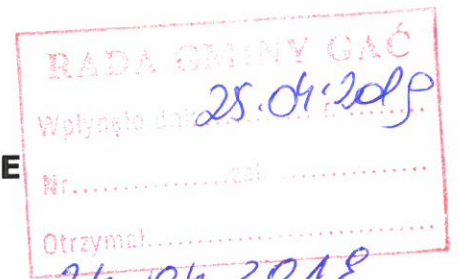 RADA GMINY GAĆ
Wpłynęło dnia 25.04.2018 r.
E
Nr..................zał..................
Otrzymał..................
24.04.2018